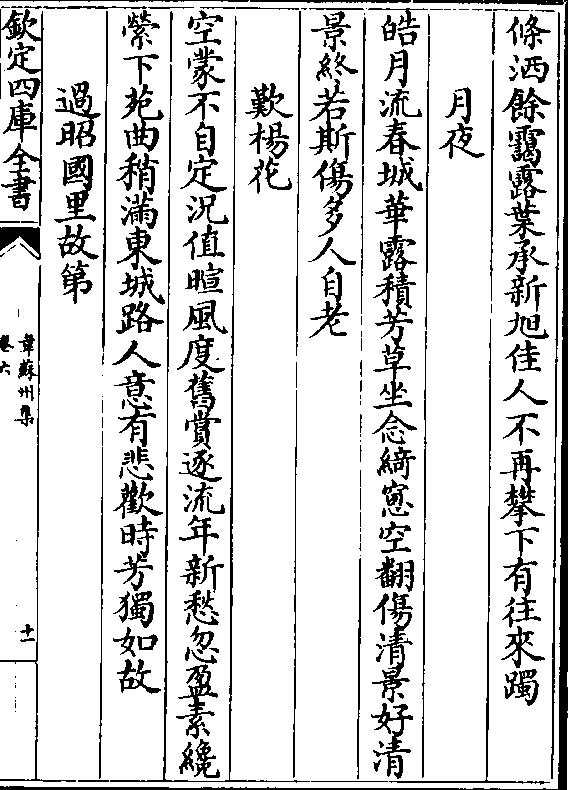 條洒餘靄露葉承新旭佳人不再攀下有往來躅
月夜
皓月流春城華露積芳草坐念綺窻空翻傷清景好清
景終若斯傷多人自老
歎楊花
空蒙不自定況值暄風度舊賞逐流年新愁忽盈素纔
縈下苑曲稍滿東城路人意有悲歡時芳獨如故
過昭國里故第
欽定四庫全書
韋蘇州集
卷六
十一